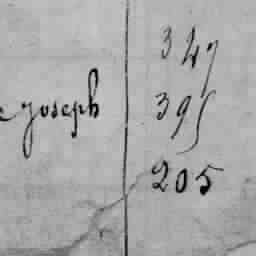 347
e Joseph 395
205